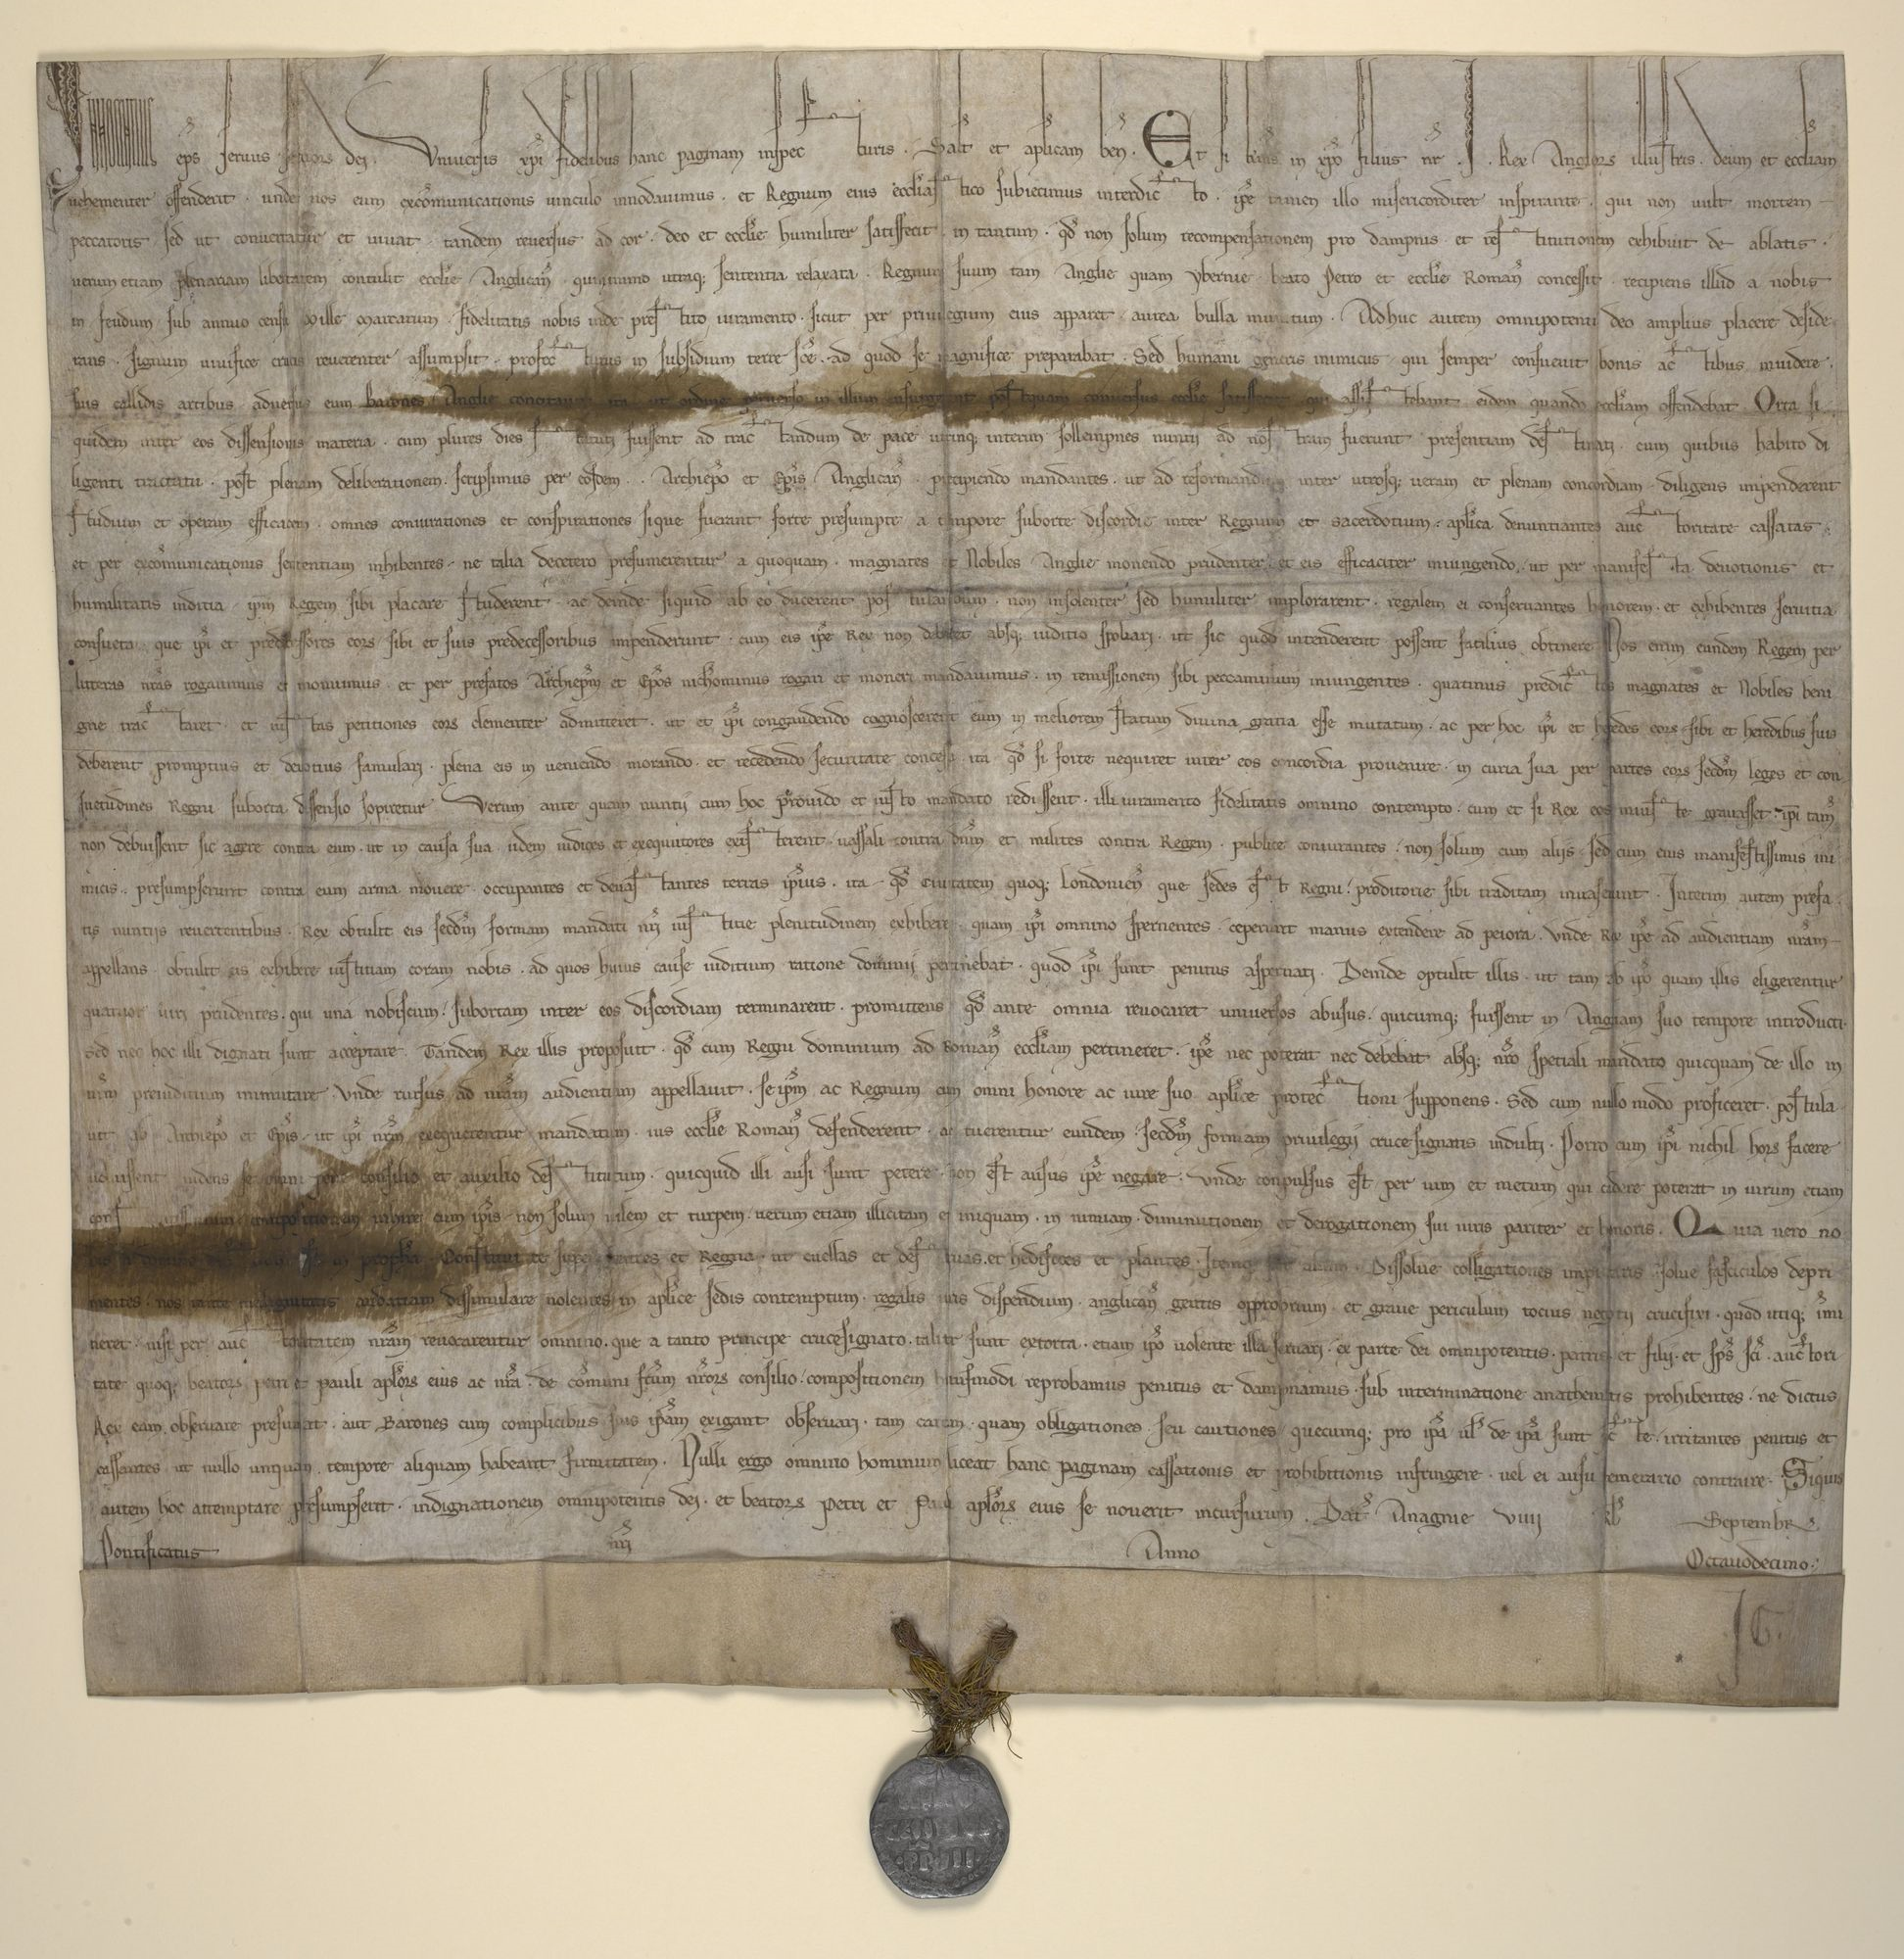 Innocentius eps seruus seruorꝝ dei. Vniuersis xpi fidelibus hanc paginam inspecturis. Salt et aplicam ben. Et si karissimus in xpo filius nr. J. Rex Anglorꝝ illustris. deum et eccliam
uehementer offenderit. unde nos eum excomunicationis uinculo innodauimus. et Regnum eius ecclastico subiecimus interdicto. ipe tamen illo misericorditer inspirante. qui non uult mortem
peccatoris. sed ut conuertatur et uiuat. tandem reuersus ad cor. deo et ecclie humiliter satisfecit. in tantum. qd non solum recompensationem pro dampnis. et restitutionem exhibuit de ablatis.
uerum etiam plenariam libertatem contulit ecclie Anglican. quinimmo utraq; sententia relaxata. Regnum suum tam Anglie quam ybernie. beato Petro et ecclie Roman concessit. recipiens illud a nobis
in feudum sub annuo censu Mille Marcarum. fidelitatis nobis inde prestito iuramento. sicut per priuilegium eius apparet aurea bulla munitum. Adhuc autem omnipotenti deo amplius placere deside
rans. signum uiuifice crucis reuerenter assumpsit. profecturus in subsidium terre sce. ad quod se magnifice preparabat. Sed humani generis inimicus. qui semper consueuit bonis actibus inuidere.
suis callidis artibus. aduersus eum barones Anglie concitauit. ita ut ordine peruerso in illum insurgerent postquam conuersus ecclie satisfecit. qui assistebant eidem quando eccliam offendebat. Orta si
quidem inter eos dissensionis materia. cum plures dies statuti fuissent ad tractandum de pace utrinq; interim sollempnes nuntii ad nostram fuerunt presentiam destinati. cum quibus habito di
ligenti tractatu. post plenam deliberationem. scripsimus per eosdem. . Archiepo et Epis Anglican. precipiendo mandantes. ut ad reformandum inter utrosq; ueram et plenam concordiam. diligens impenderent
studium et operam efficacem. omnes coniurationes et conspirationes sique fuerant forte presumpte a tempore suborte discordie inter Regnum et sacerdotium. aplica denuntiantes auctoritate cassatas.
et per excomunicationis sententiam inhibentes. ne talia decetero presumerentur a quoquam. magnates et Nobiles Anglie monendo prudenter. et eis efficaciter iniungendo. ut per manifesta deuotionis et
humilitatis inditia. ipm Regem sibi placare studerent. ac deinde siquid ab eo ducerent postulandum. non insolenter sed humiliter implorarent. regalem ei conseruantes honorem. et exhibentes seruitia
consueta. que ipi et predecessores eorꝝ sibi et suis predecessoribus impenderunt. cum eis ipe Rex non deberet absq; iuditio spoliari. ut sic quod intenderent possent facilius obtinere. Nos enim eundem Regem per
litteras nras rogauimus et monuimus. et per prefatos Archiepm et Epos nichominus rogari et moneri mandauimus. in remissionem sibi peccaminum iniungentes. quatinus predictos magnates et Nobiles beni
gne tractaret. et iustas petitiones eorꝝ clementer admitteret. ut et ipi congaudendo cognoscerent eum in meliorem statum diuina gratia esse mutatum. ac per hoc ipi et heredes eorꝝ sibi et heredibus suis
deberent promptius et deuotius famulari. plena eis in ueniendo morando. et recedendo securitate concessa. ita qd si forte nequiret inter eos concordia prouenire. in curia sua per partes eorꝝ secdm leges et con
suetudines Regni suborta dissensio sopiretur. Verum ante quam nuntii cum hoc prouido et iusto mandato redissent. illi iuramento fidelitatis omnino contempto. cum et si Rex eos iniuste grauasset. ipi tam
non debuissent sic agere contra eum. ut in causa sua iidem iudices et exequutores existerent. uassali contra dnm et milites contra Regem. publice coniurantes. non solum cum aliis. sed cum eius manifestissimis ini
micis. presumpserunt contra eum arma mouere. occupantes et deuastantes terras ipius. ita. qd Ciuitatem quoq; Londonien que sedes est Regni. proditorie sibi traditam inuaserunt. Interim autem prefa
tis nuntiis reuertentibus. Rex obtulit eis secdm formam mandati nri iustitie plenitudinem exhibere. quam ipi omnino spernentes. ceperunt manus extendere ad peiora. Vnde Rex ipe ad audientiam nram
appellans. obtulit eis exhibere iustitiam coram nobis. ad quos huius cause iuditium ratione dominii pertinebat. quod ipi sunt penitus aspernati. Deinde optulit illis. ut tam ab ipo quam illis eligerentur
quatuor uiri prudentes. qui una nobiscum. subortam inter eos discordiam terminarent. promittens qd ante omnia reuocaret uniuersos abusus. quicumq; fuissent in Angliam suo tempore introducti.
Sed nec hoc illi dignati sunt acceptare. Tandem Rex illis proposuit. qd cum Regni dominium ad Roman eccliam pertineret. ipe nec poterat nec debebat absq; nro speciali mandato quicquam de illo in
nrm preiuditium immutare. Vnde rursus ad nram audientiam appellauit. se ipm ac Regnum cum omni honore ac iure suo aplice protectioni supponens. Sed cum nullo modo proficeret. postula
uit ab Archiepo et Epis. ut ipi nrm exequerentur mandatum. ius ecclie Romane defenderent. ac tuerentur eundem. secdm formam priuilegii crucesignatis indulti. Porro cum ipi nichil horꝝ facere
uoluissent. uidens se omni pene consilio et auxilio destitutum. quicquid illi ausi sunt petere. non est ausus ipe negare. Vnde conpulsus est per uim et metum qui cadere poterat in uirum etiam
constantissimum compositionem inhire cum ipis non solum uilem et turpem. uerum etiam illicitam et iniquam. in nimiam diminutionem et derogationem sui iuris pariter et honoris. Quia uero no
bis a domino dictum est in propheta. Constitui te super gentes et Regna. ut euellas et destruas. et hedifices et plantes. Itemq; per alium. Dissolue colligationes impietatis. solue fasciculos depri
mentes. nos tante malignitatis audatiam dissimulare nolentes in aplice sedis contemptum. regalis iuris dispendium. anglican gentis opprobrium. et graue periculum tocius negotii crucifixi. quod utiq; immi
neret. nisi per auctoritatem nram reuocarentur omnino. que a tanto principe crucesignato. taliter sunt extorta. etiam ipo uolente illa seruari. ex parte dei omnipotentis. patris et filii. et sps sci. auctori
tate quoq; beatorꝝ petri et pauli aplorꝝ eius ac nra. de comuni frum nrorꝝ consilio. compositionem huiusmodi reprobamus penitus et dampnamus. sub interminatione anathematis prohibentes. ne dictus
Rex eam obseruare presumat. aut Barones cum complicibus suis ipam exigant obseruari. tam cartam. quam obligationes seu cautiones quecumq; pro ipa ul de ipa sunt facte. irritantes penitus et
cassantes. ut nullo unquam tempore aliquam habeant firmitatem. Nulli ergo omnino hominum liceat hanc paginam cassationis et prohibitionis infringere. uel ei ausu temerario contraire. Siquis
autem hoc attemptare presumpserit. indignationem omnipotentis dei. et beatorꝝ Petri et Pauli aplorꝝ eius se nouerit incursurum. Dat Anagnie VIIII kl Septembr
Pontificatus nri Anno Octauodecimo.